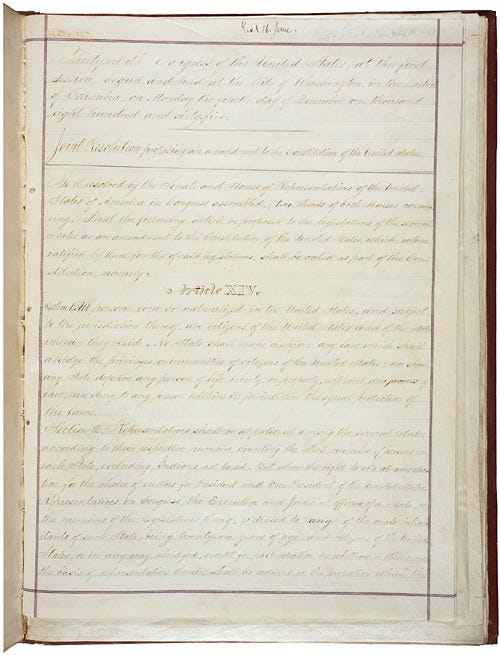 Rec'd 16 June.
Thirty-ninth Congress of the United States, at the first
Session, begun and held at the City of Washington, in the District
of Columbia, on Monday the fourth day of December, one thousand
eight hundred and sixty-five.
Joint Resolution proposing an amendment to the Constitution of the United States.
Be it resolved by the Senate and House of Representatives of the United
States of America in Congress assembled, (two thirds of both Houses concur-
ring,) That the following article be proposed to the legislatures of the several
States as an amendment to the Constitution of the United States, which, when
ratified by three fourths of said legislatures, shall be valid as part of the Con-
stitution, namely:
Article XIV.
Section 1. All persons born or naturalized in the United States, and subject
to the jurisdiction thereof, are citizens of the United States and of the State
wherein they reside. No State shall make or enforce any law which shall
abridge the privileges or immunities of citizens of the United States; nor shall
any State deprive any person of life, liberty, or property, without due process of
law; nor deny to any person within its jurisdiction the equal protection of
the laws.
Section 2. Representatives shall be apportioned among the several States
according to their respective numbers, counting the whole number of persons in
each State, excluding Indians not taxed. But when the right to vote at any elec-
tion for the choice of electors for President and Vice President of the United States,
Representatives in Congress, the Executive and Judicial officers of a State, or
the members of the Legislature thereof, is denied to any of the male inhabi-
tants of such State, being twenty-one years of age, and citizens of the United
States, or in any way abridged, except for participation in rebellion, or other crime,
the basis of representation therein shall be reduced in the proportion which the